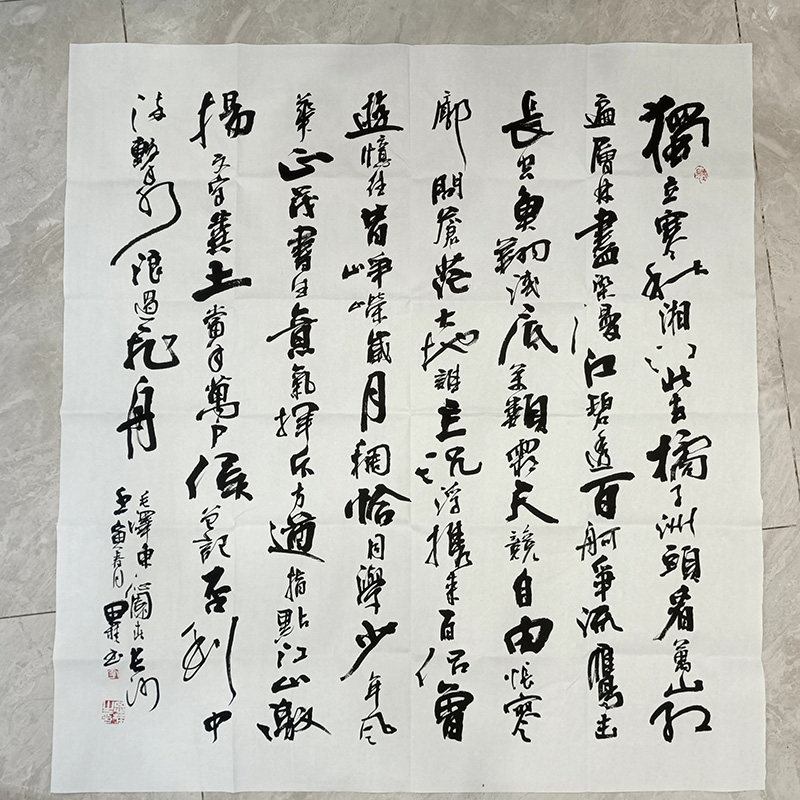 獨立寒秋湘江北去橘子洲頭看萬山紅
遍層林盡染漫江碧透百舸爭流鷹擊
長空魚翔淺底萬類霜天競自由悵寥
廓問蒼茫大地誰主沉浮攜來百侶曾
遊憶往昔崢嶸歲月稠恰同學少年風
華正茂書生意氣揮斥方遒指點江山激
揚文字糞土當年萬戶侯曾記否到中
流擊水浪遏飛舟
毛澤東沁園春長沙
壬寅春月田書